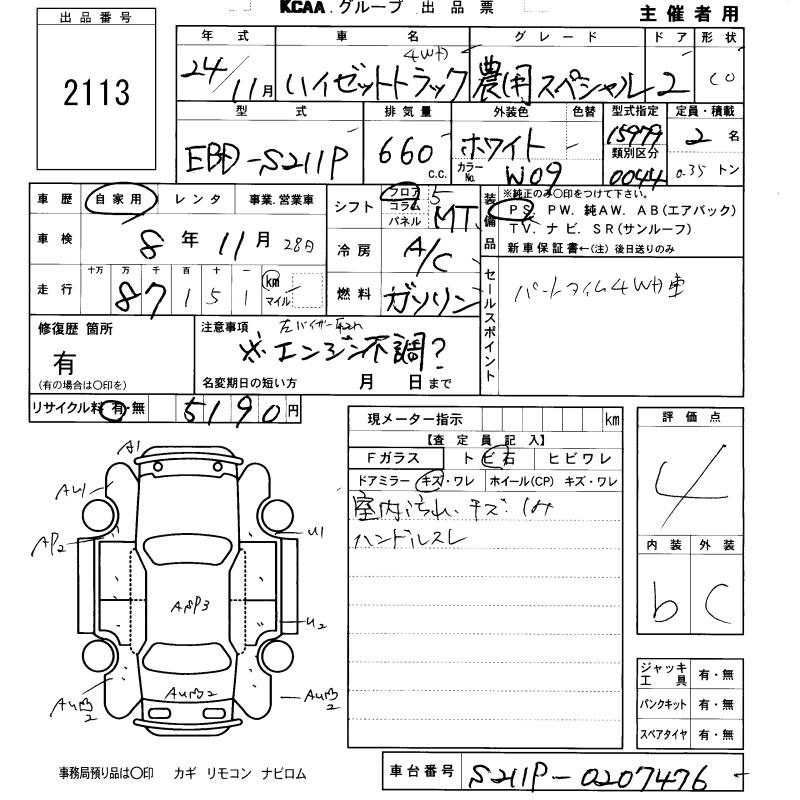 KCAA.グループ 出品票
主催者用
出品番号
2113
年式 車名 グレード ドア 形状
24/11月 ハイゼットトラック 4WD 農用スペシャル 2
型式 排気量 外装色 色替 型式指定 定員・積載
EBD-S211P 660 c.c. ホワイト 15979 2 名
カラーNo. W09 類別区分 0044 0.35 トン
車歴 自家用 レンタ 事業.営業車
車検 8 年 11 月 28日
走行 十万 万 千 百 十 一
87151 km マイル
シフト フロア コラム パネル 5 MT
冷房 A/C
燃料 ガソリン
装備品
※純正のみ〇印をつけて下さい。
PS. PW. 純AW. AB(エアバック)
TV. ナビ. SR(サンルーフ)
新車保証書←(注)後日送りのみ
セールスポイント
パートタイム4WD車
修復歴 箇所
有
(有の場合は〇印を)
注意事項
※エンジン不調?
名変期日の短い方 月 日まで
リサイクル料 有・無 5190 円
現メーター指示 km
【査定員記入】
Fガラス トビ石 ヒビワレ
ドアミラー キズ・ワレ ホイール(CP) キズ・ワレ
室内汚れ、キズ、しみ
ハンドルスレ
評価点
4
内装 外装
b C
A1
AU1
AP2
U1
U2
ジャッキ工具 有・無
パンクキット 有・無
スペアタイヤ 有・無
事務局預り品は〇印 カギ リモコン ナビロム
車台番号 S211P-0207476